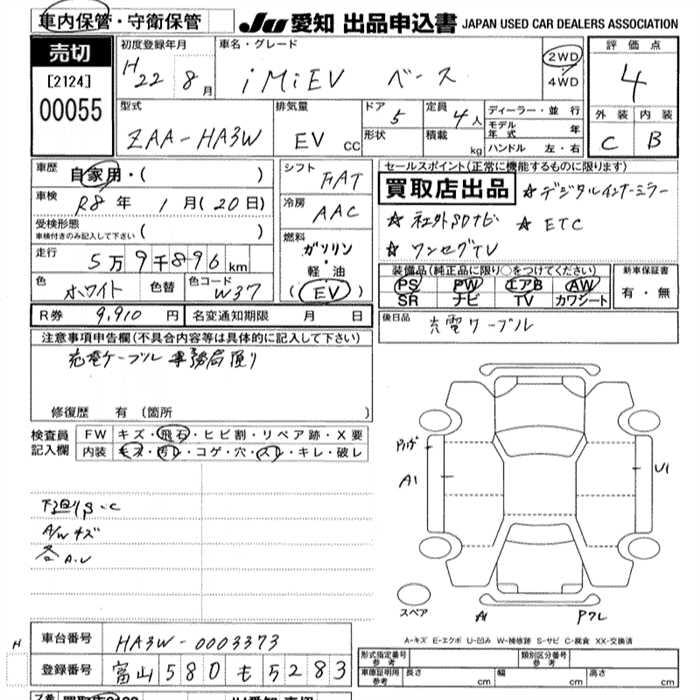 車内保管・守衛保管 JU愛知 出品申込書 JAPAN USED CAR DEALERS ASSOCIATION
売切
[2124]
00055
初度登録年月
H22 8月
車名・グレード
i MiEV ベース
2WD
4WD
評価点
4
外装 内装
C B
型式
ZAA-HA3W
排気量
EV cc
ドア 5
形状
定員 4人
積載 kg
ディーラー・並行
モデル年式 年
ハンドル 左・右
車歴
自家用・( )
車検
R8年 1月(20日)
受検形態
車検付きのみ記入して下さい ( )
走行
5万9千896km
色 ホワイト 色替 色コード W37
シフト FAT
冷房 AAC
燃料
ガソリン
・
軽油
(EV)
セールスポイント(正常に機能するものに限ります)
買取店出品 ☆デジタルインナーミラー
☆社外SDナビ ☆ETC
☆ワンセグTV
装備品(純正品に限り○をつけてください)
PS PW エアB AW
SR ナビ TV カワシート
新車保証書
有・無
R券 9,910円 名変通知期限 月 日
後日品 充電ケーブル
注意事項申告欄(不具合内容等は具体的に記入して下さい)
充電ケーブル事務局預り
修復歴 有 (箇所 )
検査員記入欄
FW キズ・飛石・ヒビ割・リペア跡・X要
内装 キズ・汚レ・コゲ・穴・スレ・キレ・破レ
下廻りS・C
A/Wキズ
各A.U
A1
U1
スペア
A1
A-キズ E-エクボ U-凹み W-補修跡 S-サビ C-腐食 XX-交換済
車台番号 HA3W-0003373
H
登録番号 富山580も5283
形式指定番号 参考
類別区分番号 参考
車庫証明用 参考 長さ cm 幅 cm 高さ cm